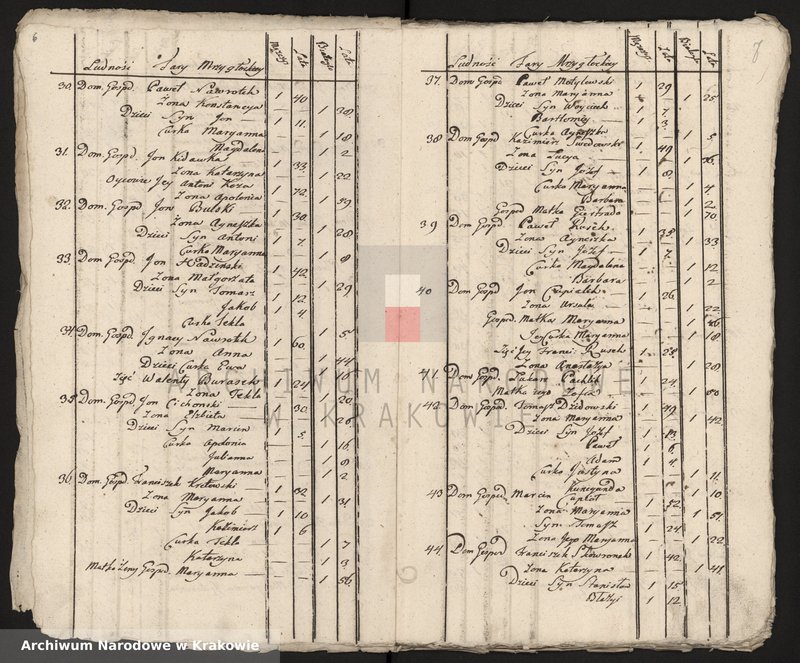 6
Ludność Fary Mrzygłockiey
Męszcz Lata Białogło Lata
30. Dom. Gospd. Paweł Nawrotek 1 40
Zona Konstancya 1 38
Dzieci Syn Jan 1 11
Curka Maryanna 1 18
Magdalena 1 2
31. Dom. Gospd. Jon Kidawka 1 33
Zona Katarzyna 1 22
Oycowie Jey Antoni Koza 1 72
Zona Apolonia 1 59
32. Dom. Gospd Jon Bulski 1 30
Zona Agneszka 1 28
Dzieci Syn Antoni 1 7
Curka Maryanna 1 8
33 Dom Gospd. Jon 1 42
Zona Małgorzata 1 29
Dzieci Syn Tomasz 1 12
Jakob 1 4
Curka Tekla 1 5
34. Dom. Gospd. Jgnacy Nawrotk 1 60
Zona Anna 1 44
Dzieci Curka Ewa 1 18
Zięć Walenty Burasek 1 24
Zona Tekla 1 20
35. Dom. Gospd Jon Cichonski 1 30
Zona Elzbieta 1 26
Dzieci Syn Marcin 1 5
Curka Apolonia 1 16
Julianna 1 9
Maryanna 1 2
36 Dom. Gospd Franciszek Krolowski 1 32
Zona Maryanna 1 31
Dzieci Syn Jakob 1 10
Kaźimierz 1 6
Curka Tekla 1 7
Katarzyna 1 3
Matka Zony Gospd. Maryanna 1 56
7
Ludność Fary Mrzygłockiey
Męszcz Lata Białogło Lata
37. Dom Gospd Paweł Motylewski 1 29
Zona Maryanna 1 25
Dzieci Syn Woyciech 1 7
Bartłomiey 1 3
Curka Agneszka 1 5
38 Dom Gospd Kazimierz 1 49
Zona Lucya 1 36
Dzieci Syn Józef 1 8
Curka Maryanna 1 4
Barbara 1 2
Gospd Matka Giertruda 1 70
39 Dom Gospd. Paweł Kusek 1 38
Zona Agneszka 1 33
Dzieci Syn Józef 1 7
Curka Magdalena 1 12
Barbara 1 2
40 Dom Gospd Jon 1 26
Zona Ursula 1 22
Gospd. Matka Maryanna 1 46
Jey Curka Maryanna 1 18
Zięć Jey Franci. Rusek 1 28
Zona Anastazya 1 28
41 Dom Gospd. Łukasz 1 24
Matka Jego Zofia 1 60
42 Dom Gospod Tomasz Dzidowski 1 49
Zona Maryanna 1 42
Dzieci Syn Józef 1
Paweł 1 6
Adam 1 4
Curka Justyna 1 11
Kunegunda 1 10
43 Dom Gospod Marcin 1 52
Zona Maryanna 1 51
Syn Tomasz 1 24
Zona Jego Maryanna 1 22
44. Dom Gospod Franciszek Skowronek 1 42
Zona Katarzyna 1 41
Dzieci Syn Stanisław 1 15
Błażej 1 12
ARCHIWUM NARODOWE
W KRAKOWIE
Archiwum Narodowe w Krakowie